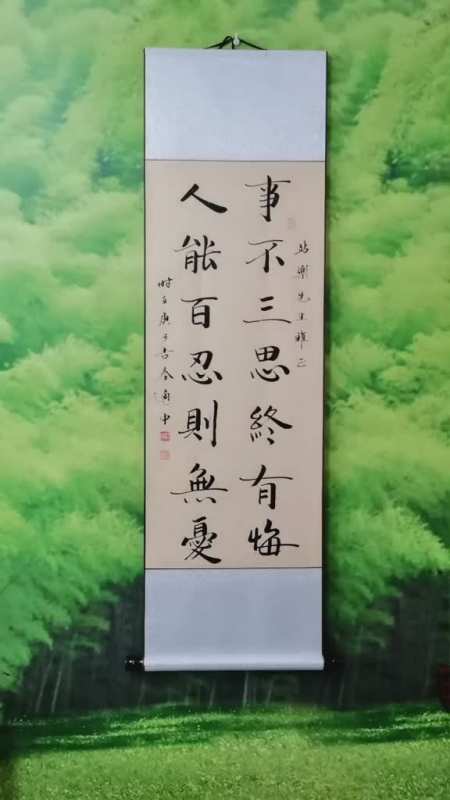 事不三思終有悔
先生雅正
人能百忍則無憂
時在庚子吉春